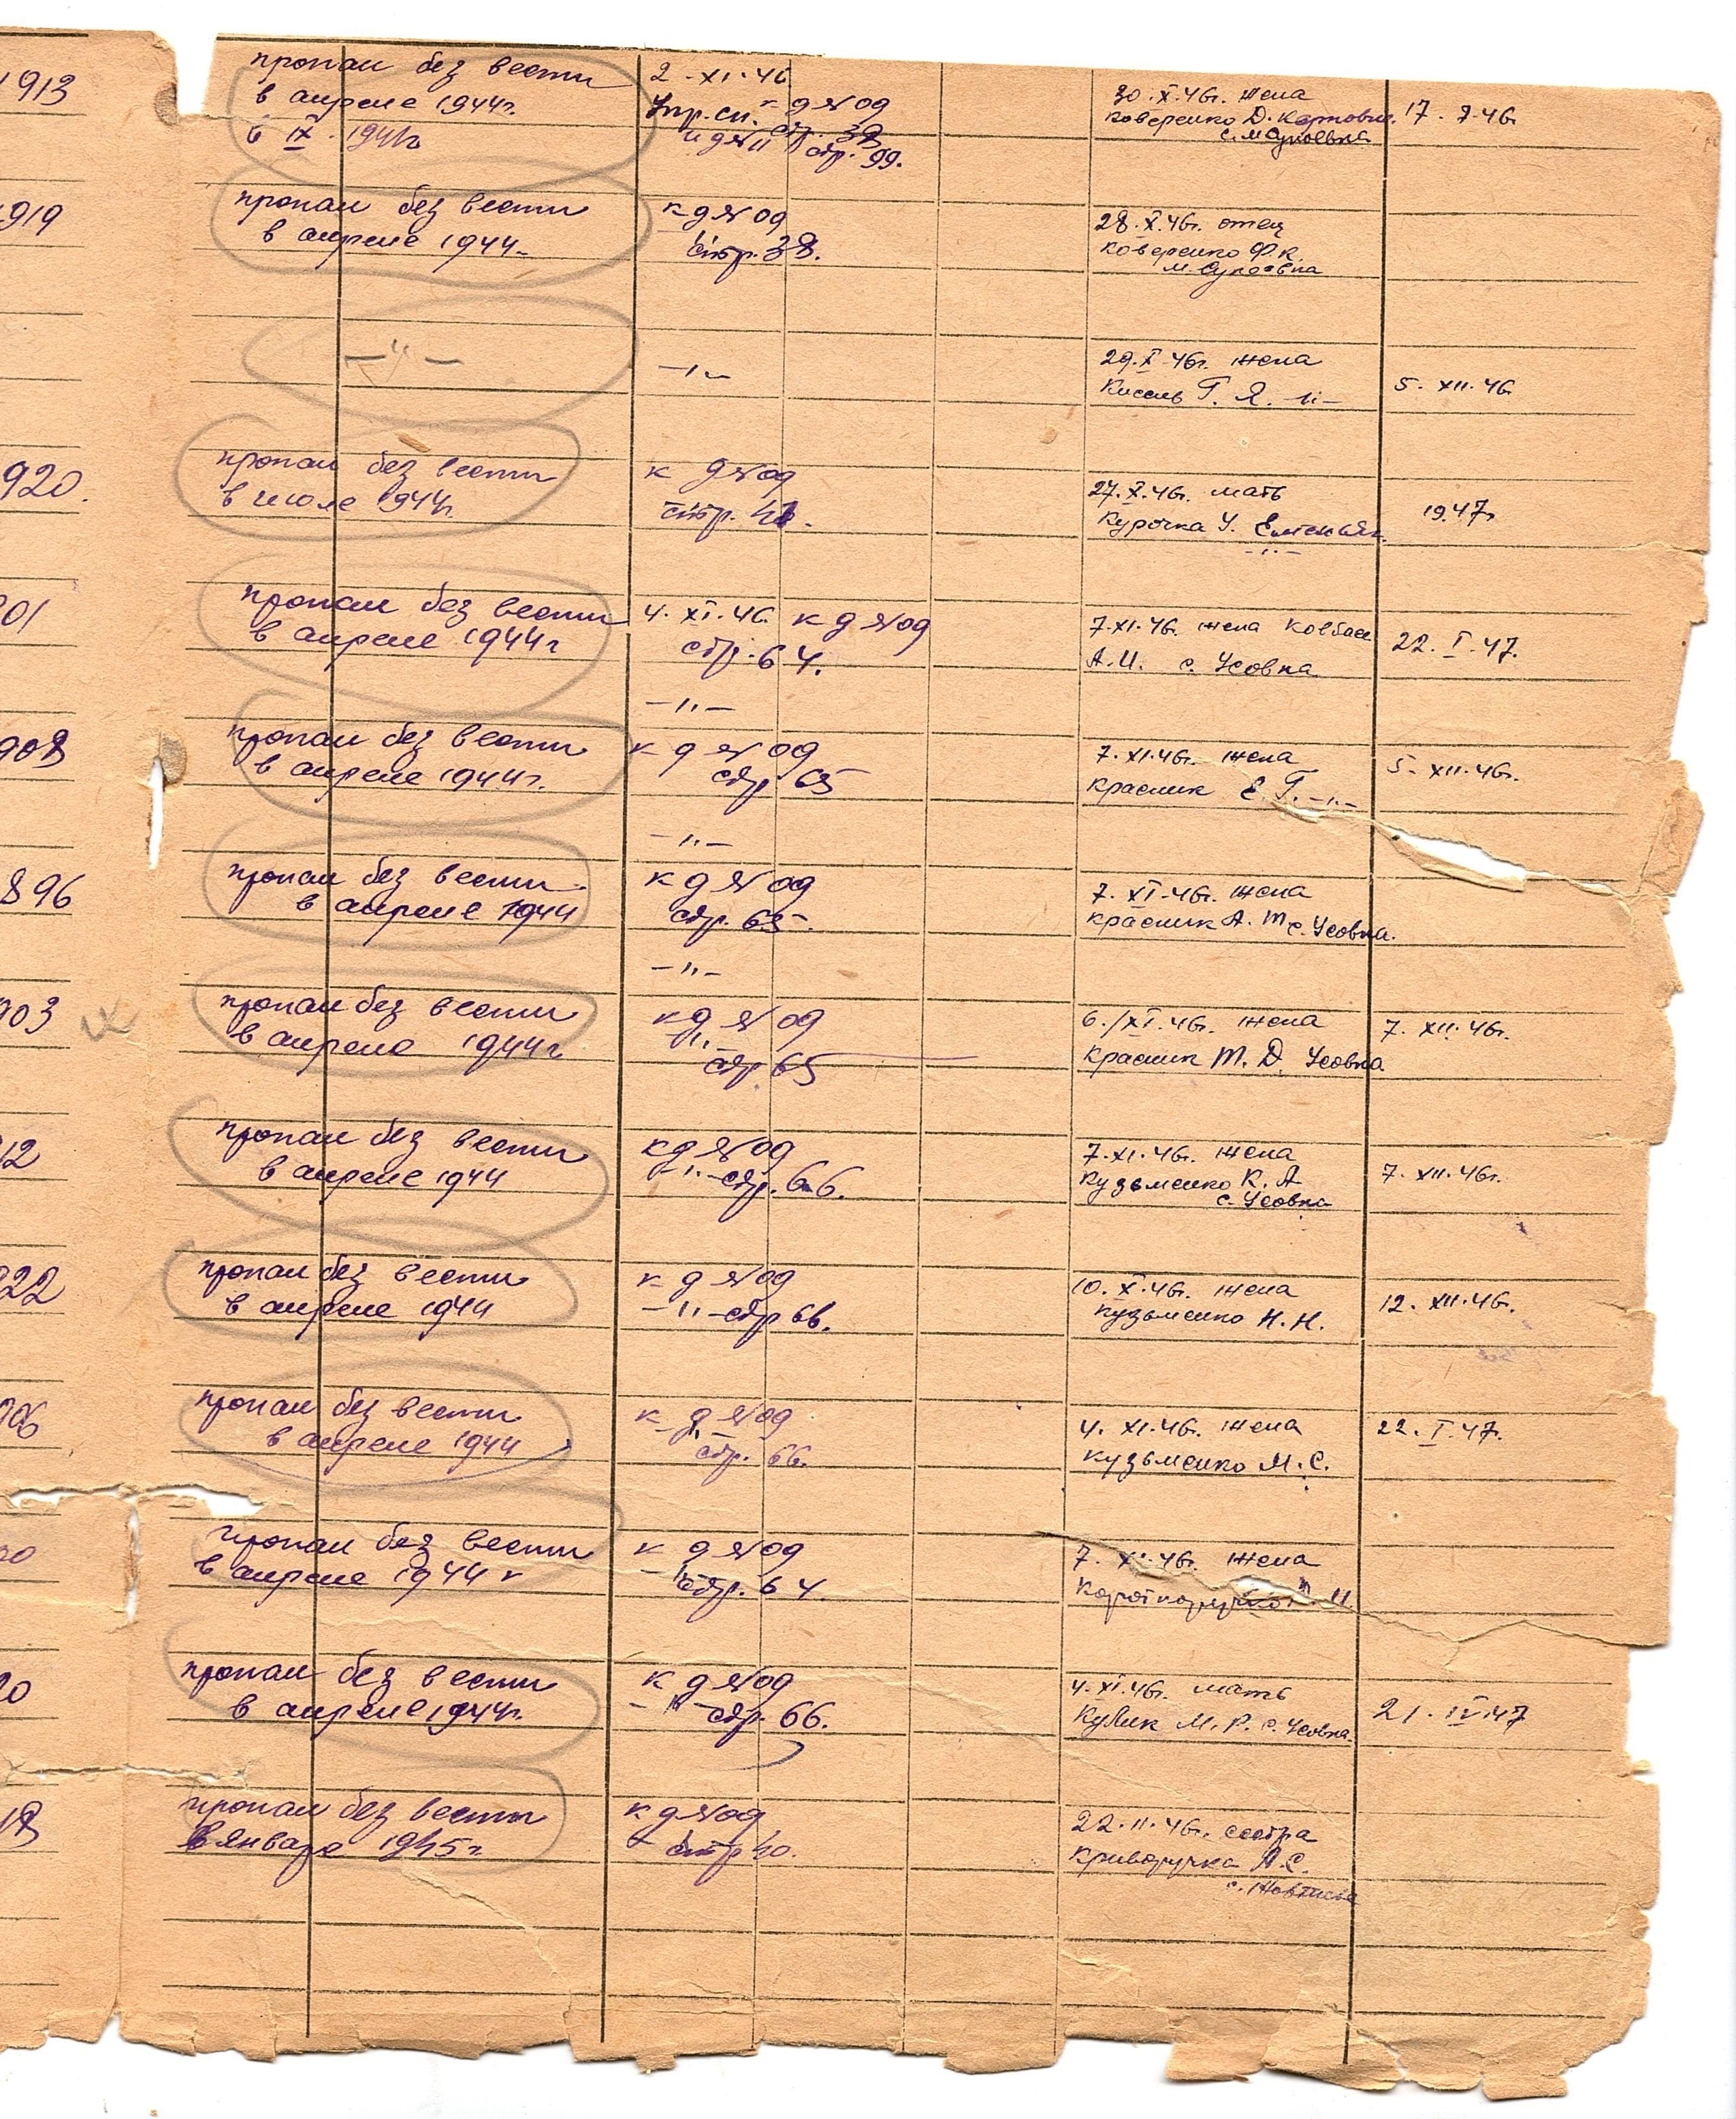 1913
пропал без вести
в апреле 1944г.
в IX 194
2 - XI - 46
к д № 09
стр. 39
стр. 99.
30.X.46г. жена
Коверенко Д.
17 -
919
пропал без вести
в апреле 1944
к д № 09
стр. 38.
28.X.46г. отец
Коверенко Ф.К.
— " —
— " —
29.X.46г. жена
Кисель Г. Я. — " —
5. XII. 46
920.
пропал без вести
в июле 1944г.
к д № 09
стр.
27.X.46г. мать
Курочка У.
1947г
01
пропал без вести
в апреле 1944г
4. XI. 46. к д № 09
стр. 64.
7.XI.46. жена Ковбаса
А.И. с. Усовка
22. I. 47.
— " —
908
пропал без вести
в апреле 1944г.
к д № 09
стр 65
7.XI.46г. жена
Красник Е. Г. — " —
5. XII. 46г.
— " —
896
пропал без вести
в апреле 1944
к д № 09
стр. 65.
7. XI. 46г. жена
Красник А. Т. с. Усовка.
— " —
903
пропал без вести
в апреле 1944г
к д № 09
— " —
стр 65
6./XI. 46г. жена
Красник М. Д. Усовка
7. XII. 46г.
12
пропал без вести
в апреле 1944
к д № 09
— " — стр. 66.
7.XI.46г. жена
Кузьменко К. А
с. Усовка
7. XII. 46г.
22
пропал без вести
в апреле 1944
к д № 09
— " — стр 66.
10. X. 46г. жена
Кузьменко Н. Н.
12. XII. 46г.
906
пропал без вести
в апреле 1944
к д № 09
— " —
стр. 66.
4. XI. 46г. жена
Кузьменко М. С.
22. I. 47.
пропал без вести
в апреле 1944 г
к д № 09
— " — стр. 64.
7. XI. 46г. жена
пропал без вести
в апреле 1944г.
к д № 09
— " — стр. 66.
4. XI. 46г. мать
Кулик М. Р. с. Усовка.
21. IV. 47
18
пропал без вести
в январе 1945г.
к д № 09
стр 40.
22. 11. 46г. сестра
Криворучка А. С.